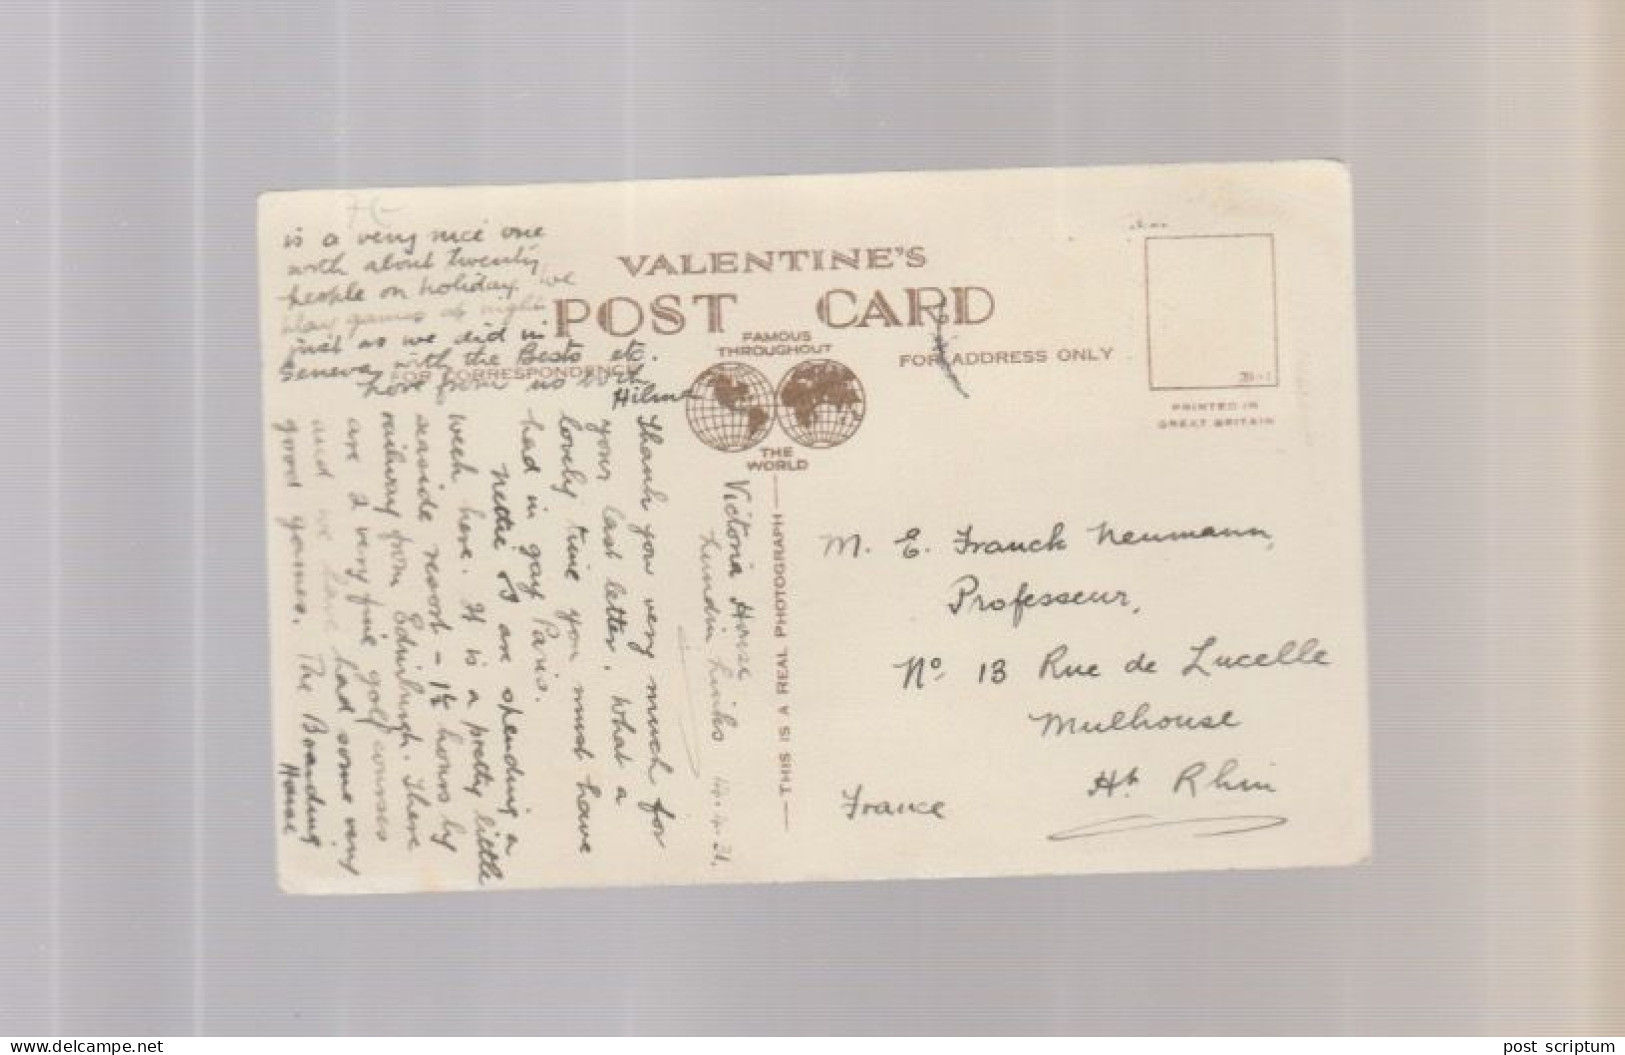 Victoria House
Lundin Links
14.4.31.
Thank you very much for
your last letter. What a
lovely time you must have
had in gay Paris.
Nettie & I are spending a
week here. It is a pretty little
seaside resort - 1½ hours by
railway from Edinburgh. There
are 2 very fine golf courses
and we have had some very
good games. The Boarding
House
is a very nice one
with about twenty
people on holiday. We
play games at night
just as we did in
Geneva with the Bests etc.
Love from us both
Hilma
VALENTINE'S
POST CARD
FAMOUS
THROUGHOUT
THE
WORLD
FOR CORRESPONDENCE
FOR ADDRESS ONLY
PRINTED IN
GREAT BRITAIN
— THIS IS A REAL PHOTOGRAPH —
M. E. Franck Neumann,
Professeur,
No 13 Rue de Lucelle
Mulhouse
Ht Rhin
France
delcampe.net
post scriptum